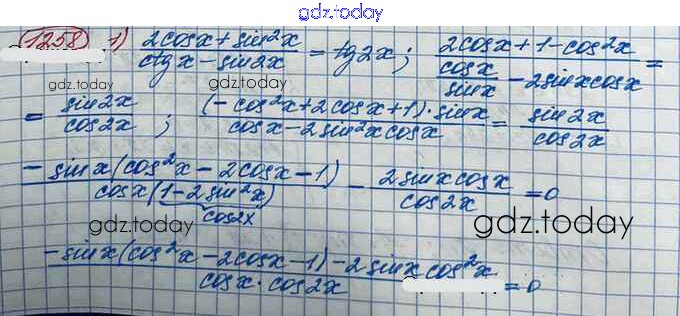 gdz.today
1258 1) (2cosx + sin²x)/(ctgx − sin2x) = tg2x; (2cosx + 1 − cos²x)/(cosx/sinx − 2sinxcosx) =
gdz.today
= sin2x/cos2x; ((−cos²x + 2cosx + 1)·sinx)/(cosx − 2sin²xcosx) = sin2x/cos2x
(−sinx(cos²x − 2cosx − 1))/(cosx(1 − 2sin²x)) − 2sinxcosx/cos2x = 0
cos2x
gdz.today
gdz.today
(−sinx(cos²x − 2cosx − 1) − 2sinxcos²x)/(cosx·cos2x) = 0
gdz.today